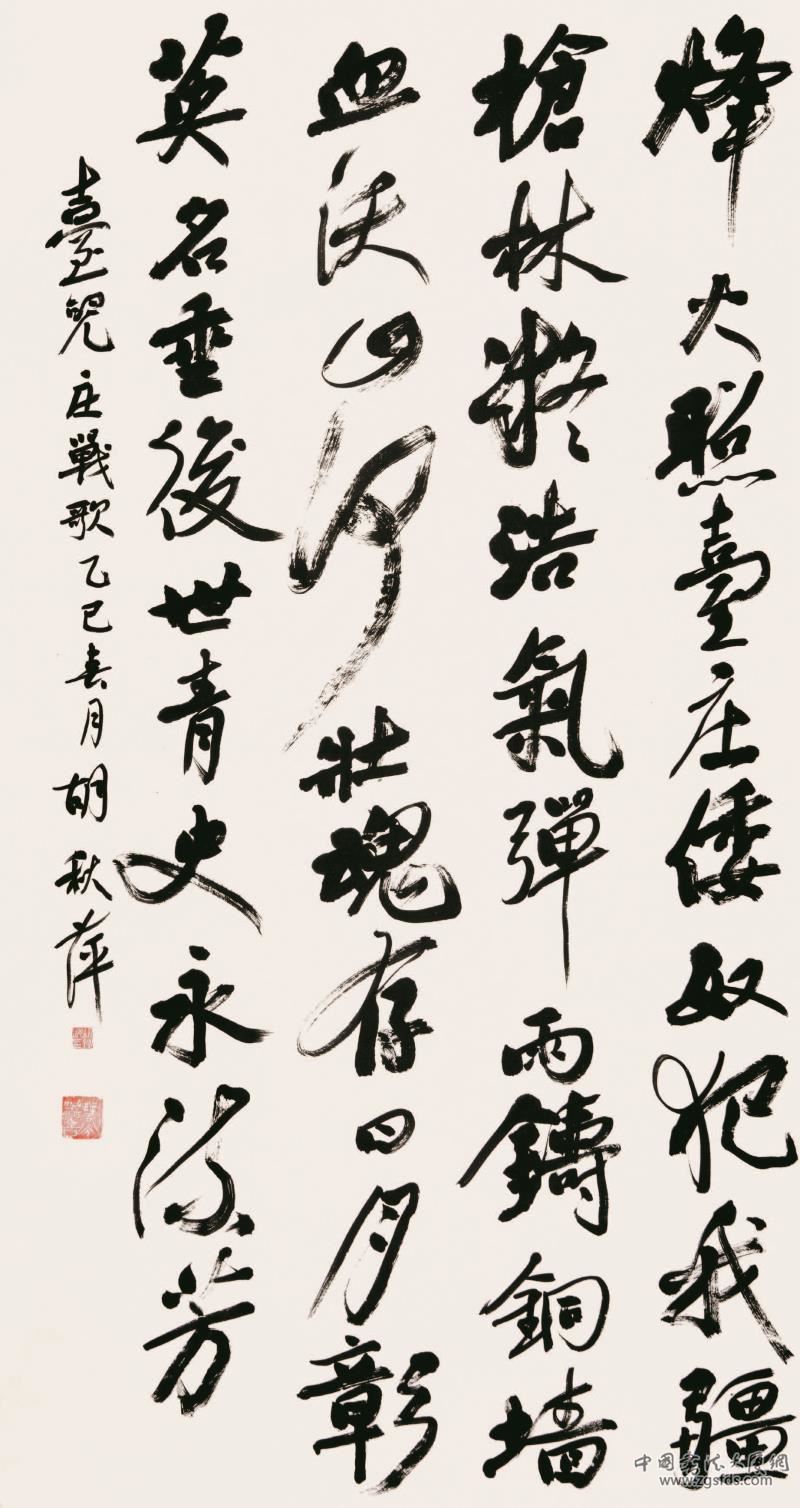 烽火照臺庄倭奴犯我疆
槍林凝浩氣彈雨鑄銅墙
血沃山河壯魂存日月彰
英名垂後世青史永流芳
臺兒庄戰歌乙巳春月胡秋萍
中国书法大厦網
www.zgsfds.com